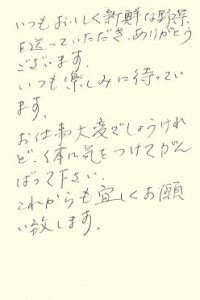 いつもおいしく新鮮な野菜
を送っていただき、ありがとう
ございます。
いつも楽しみに待ってい
ます。
お仕事大変でしょうけれ
ど、体に気をつけてがん
ばって下さい。
これからも宜しくお願
い致します。